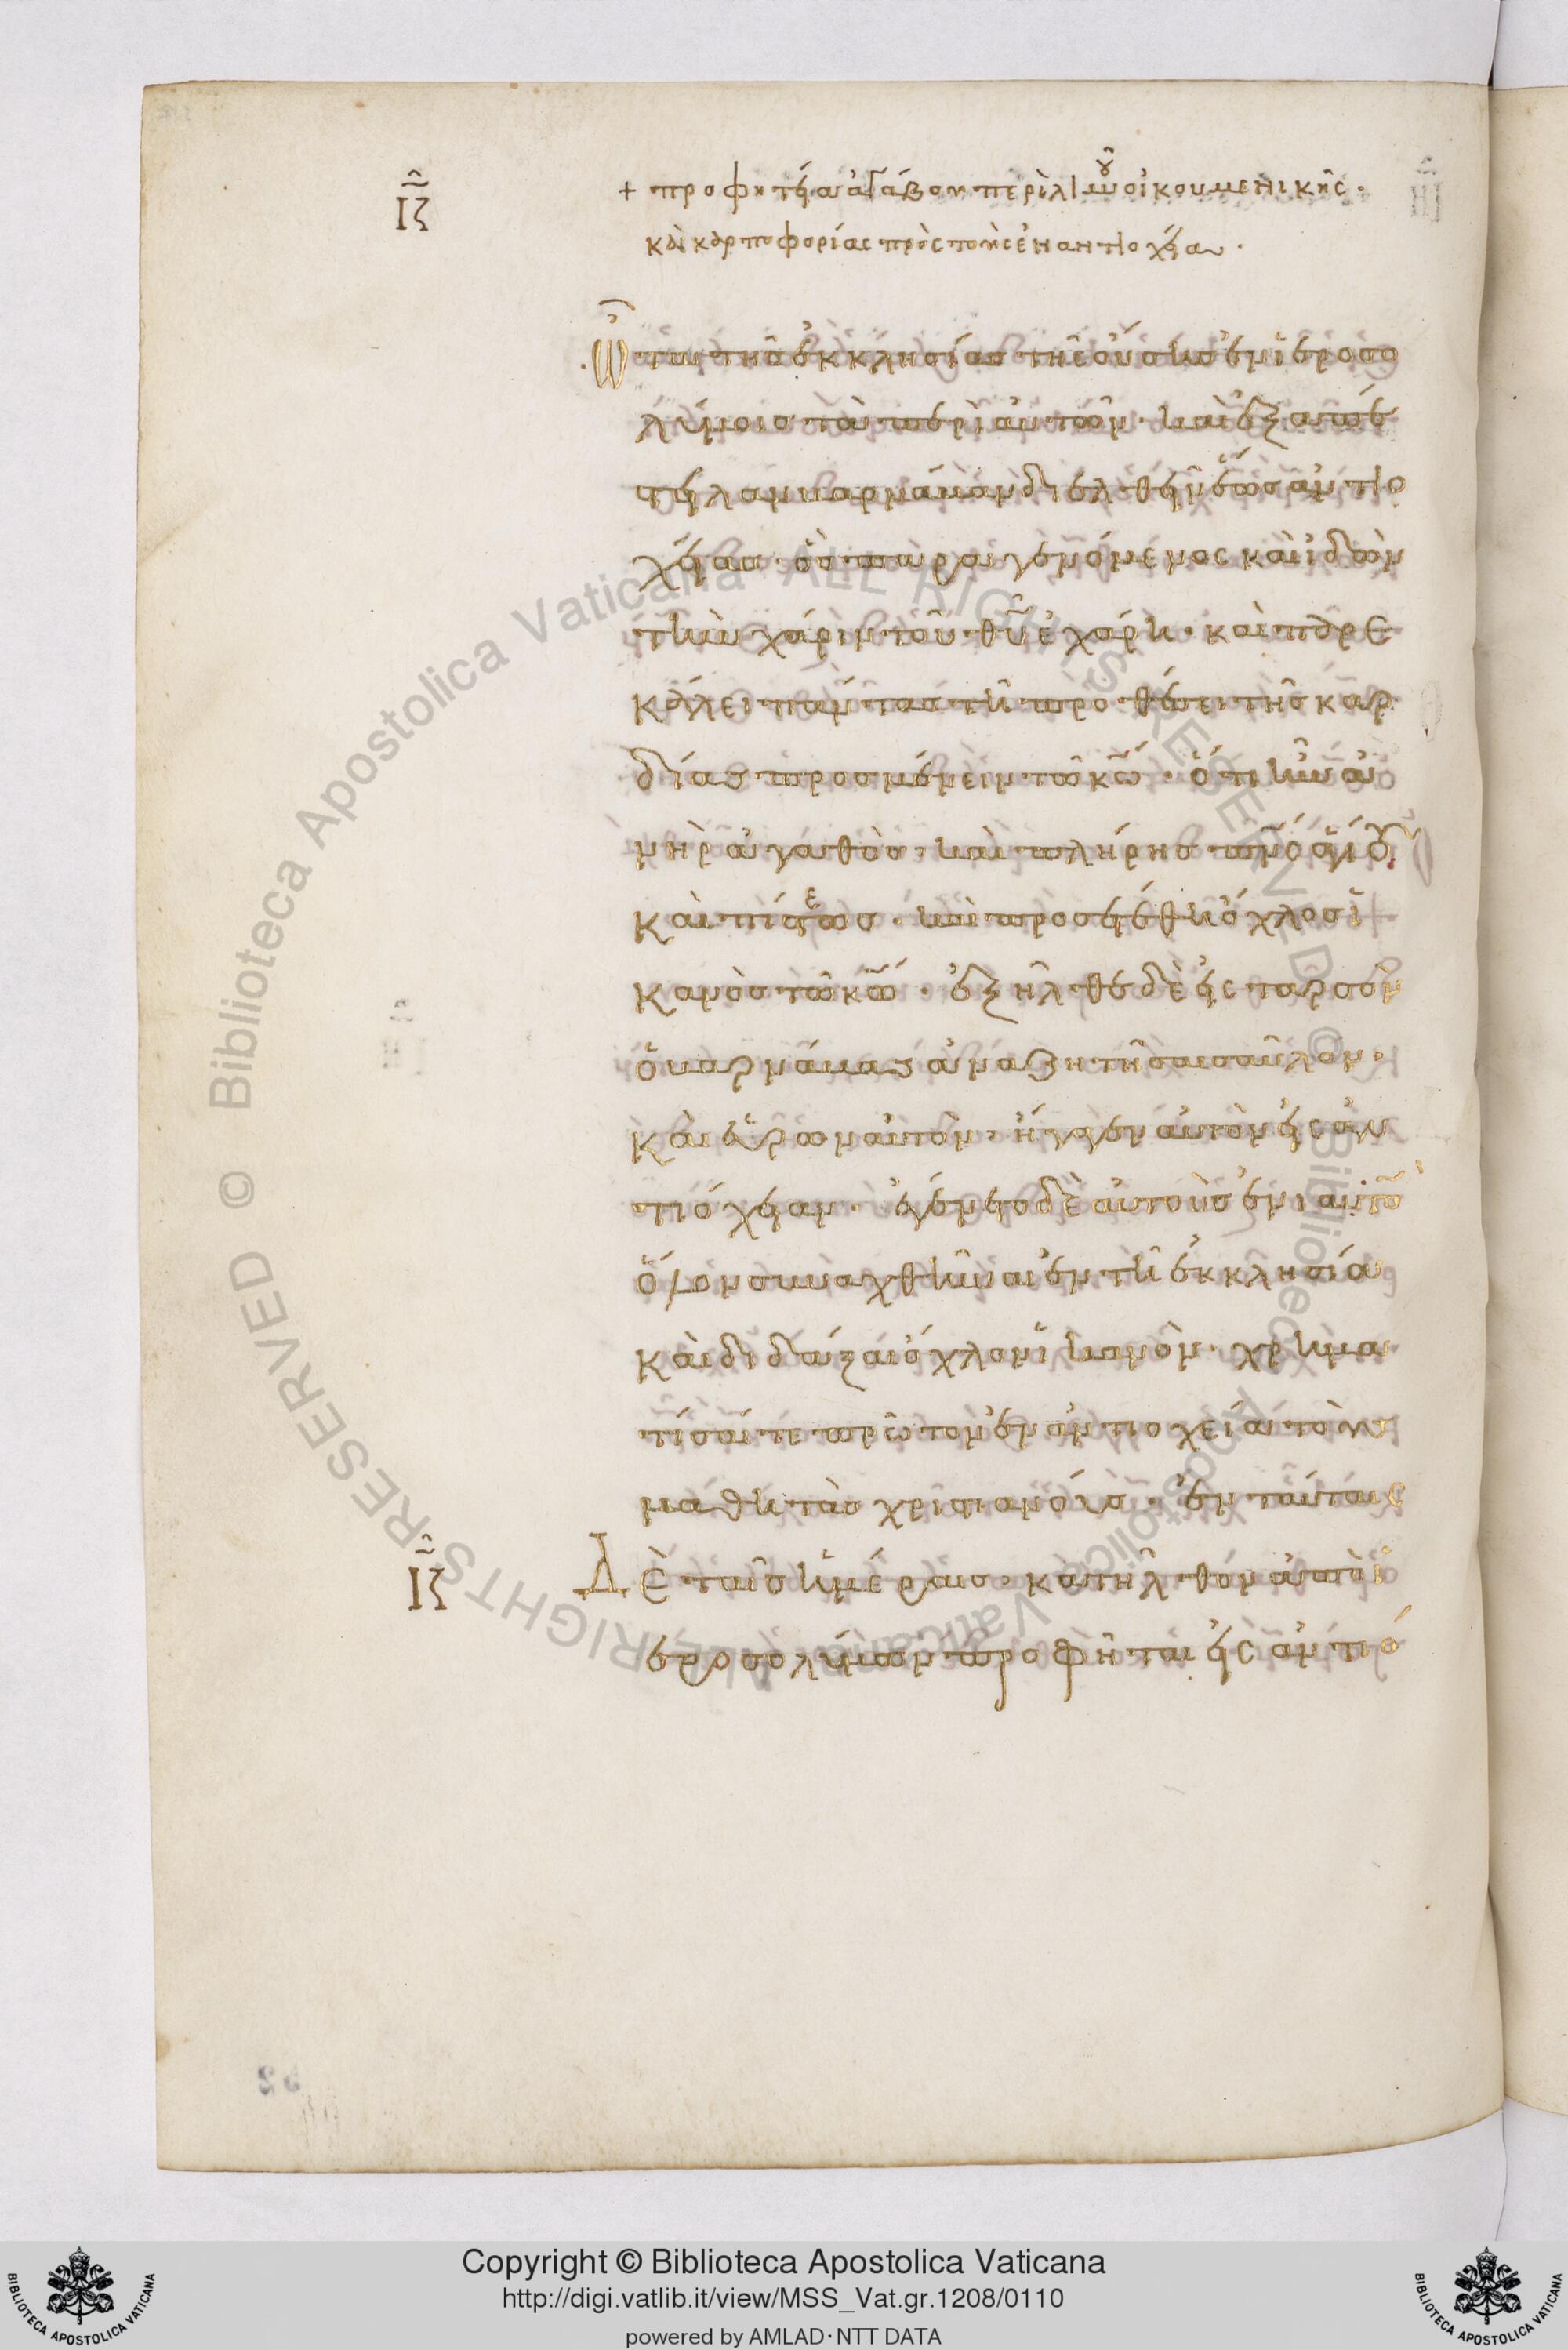 ΙΖ
+ προφητεία ἀγάβου περὶ λιμοῦ οἰκουμενικῆς·
καὶ καρποφορίας πρὸς τοὺς ἐν ἀντιοχεία·
ὦτα τῆς ἐκκλησίας τῆς οὔσης ἐν ἱεροσο
λύμοις τὰ περὶ αὐτῶν· καὶ ἐξαπέ
στειλαν βαρνάβαν διελθεῖν ἕως ἀντιο
χείας· ὃς παραγενόμενος καὶ ἰδὼν
τὴν χάριν τοῦ θῦ ἐχάρη· καὶ παρε
κάλει πάντας τῆ προθέσει τῆς καρ
δίας προσμένειν τῶ κῶ· ὅτι ἦν ἀ
νὴρ ἀγαθὸς· καὶ πλήρης πνς ἁγίου
καὶ πίστεως· καὶ προσετέθη ὄχλος ἱ
κανὸς τῶ κῶ· ἐξῆλθε δὲ εἰς ταρσὸν
ὁ βαρνάβας ἀναζητῆσαι σαῦλον·
καὶ εὑρὼν αὐτὸν· ἤγαγεν αὐτὸν εἰς ἀν
τιόχειαν· ἐγένετο δὲ αὐτοὺς ἐνιαυτὸν
ὅλον συναχθῆναι ἐν τῆ ἐκκλησία
καὶ διδάξαι ὄχλον ἱκανὸν· χρημα
τίσαι τε πρῶτον ἐν ἀντιοχεία τοὺς
μαθητὰς χριστιανούς· ἐν ταύταις
ΙΖ
Δὲ ταῖς ἡμέραις· κατῆλθον ἀπὸ ἱ
εροσολύμων προφῆται εἰς ἀντιό
Copyright © Biblioteca Apostolica Vaticana
http://digi.vatlib.it/view/MSS_Vat.gr.1208/0110
powered by AMLAD·NTT DATA
BIBLIOTECA APOSTOLICA VATICANA
BIBLIOTECA APOSTOLICA VATICANA
© Biblioteca Apostolica Vaticana ALL RIGHTS RESERVED © Biblioteca Apostolica Vaticana ALL RIGHTS RESERVED